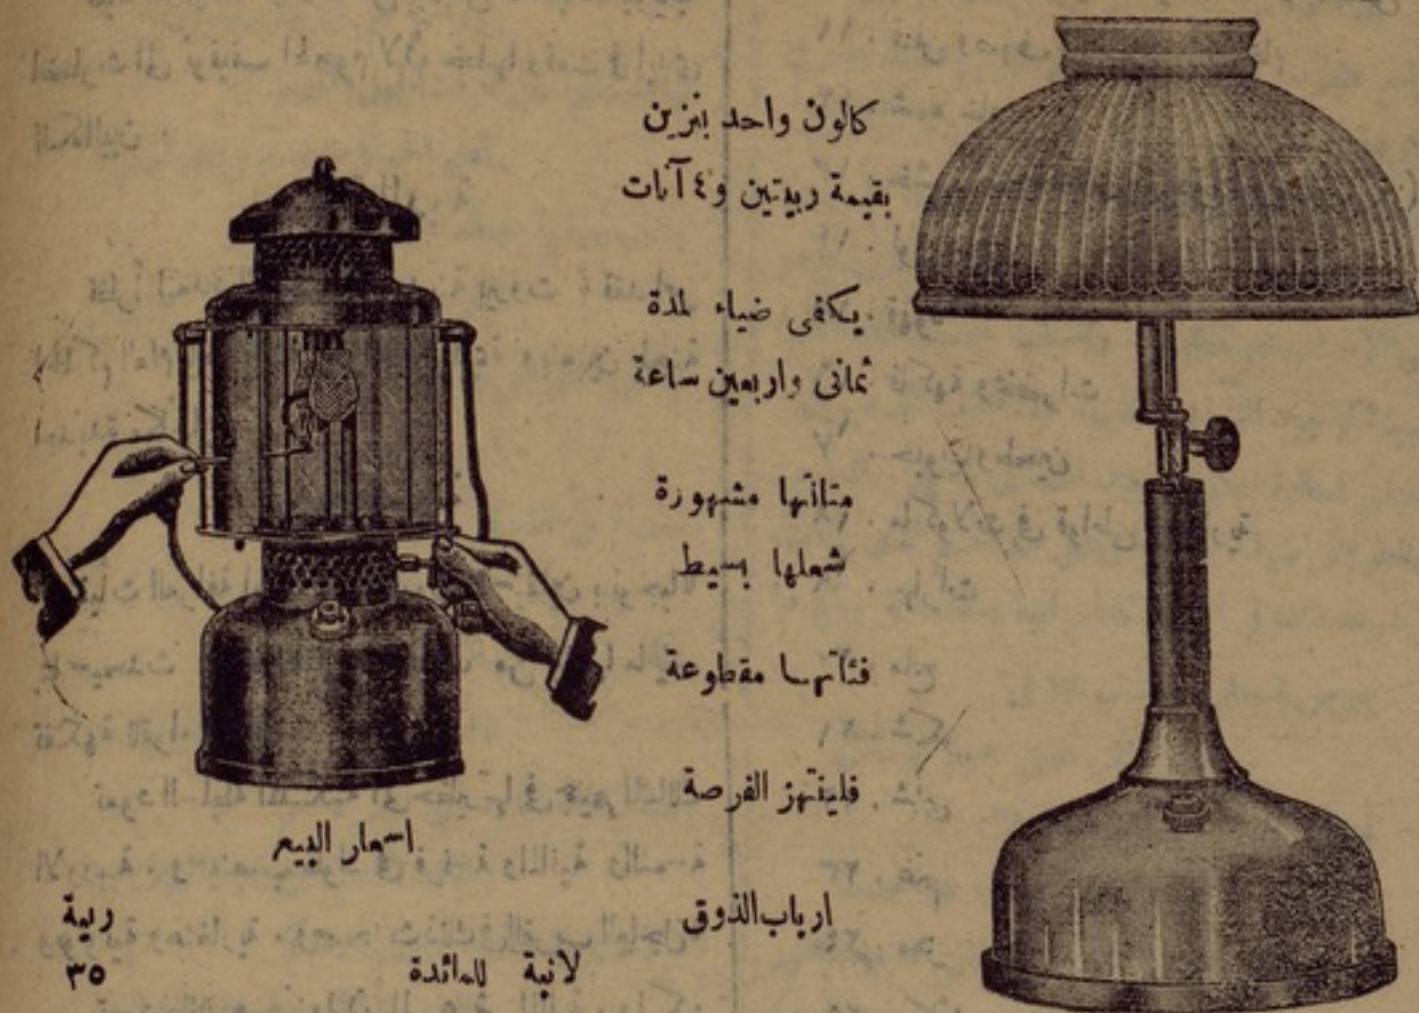 كالون واحد بنزين
بقيمة ربيتين و٤ آنات
يكفى ضياء لمدة
ثمانى واربعين ساعة
متانتها مشهورة
شعلها بسيط
فئآتها مقطوعة
فلينتهز الفرصة
ارباب الذوق
اسعار البيع
ربية
لانبة للمائدة ٣٥